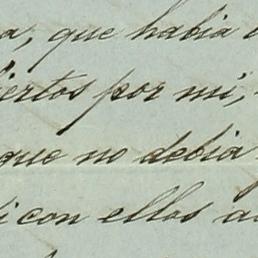 a, que habia
iertos por mi,
que no debia
i con ellos a